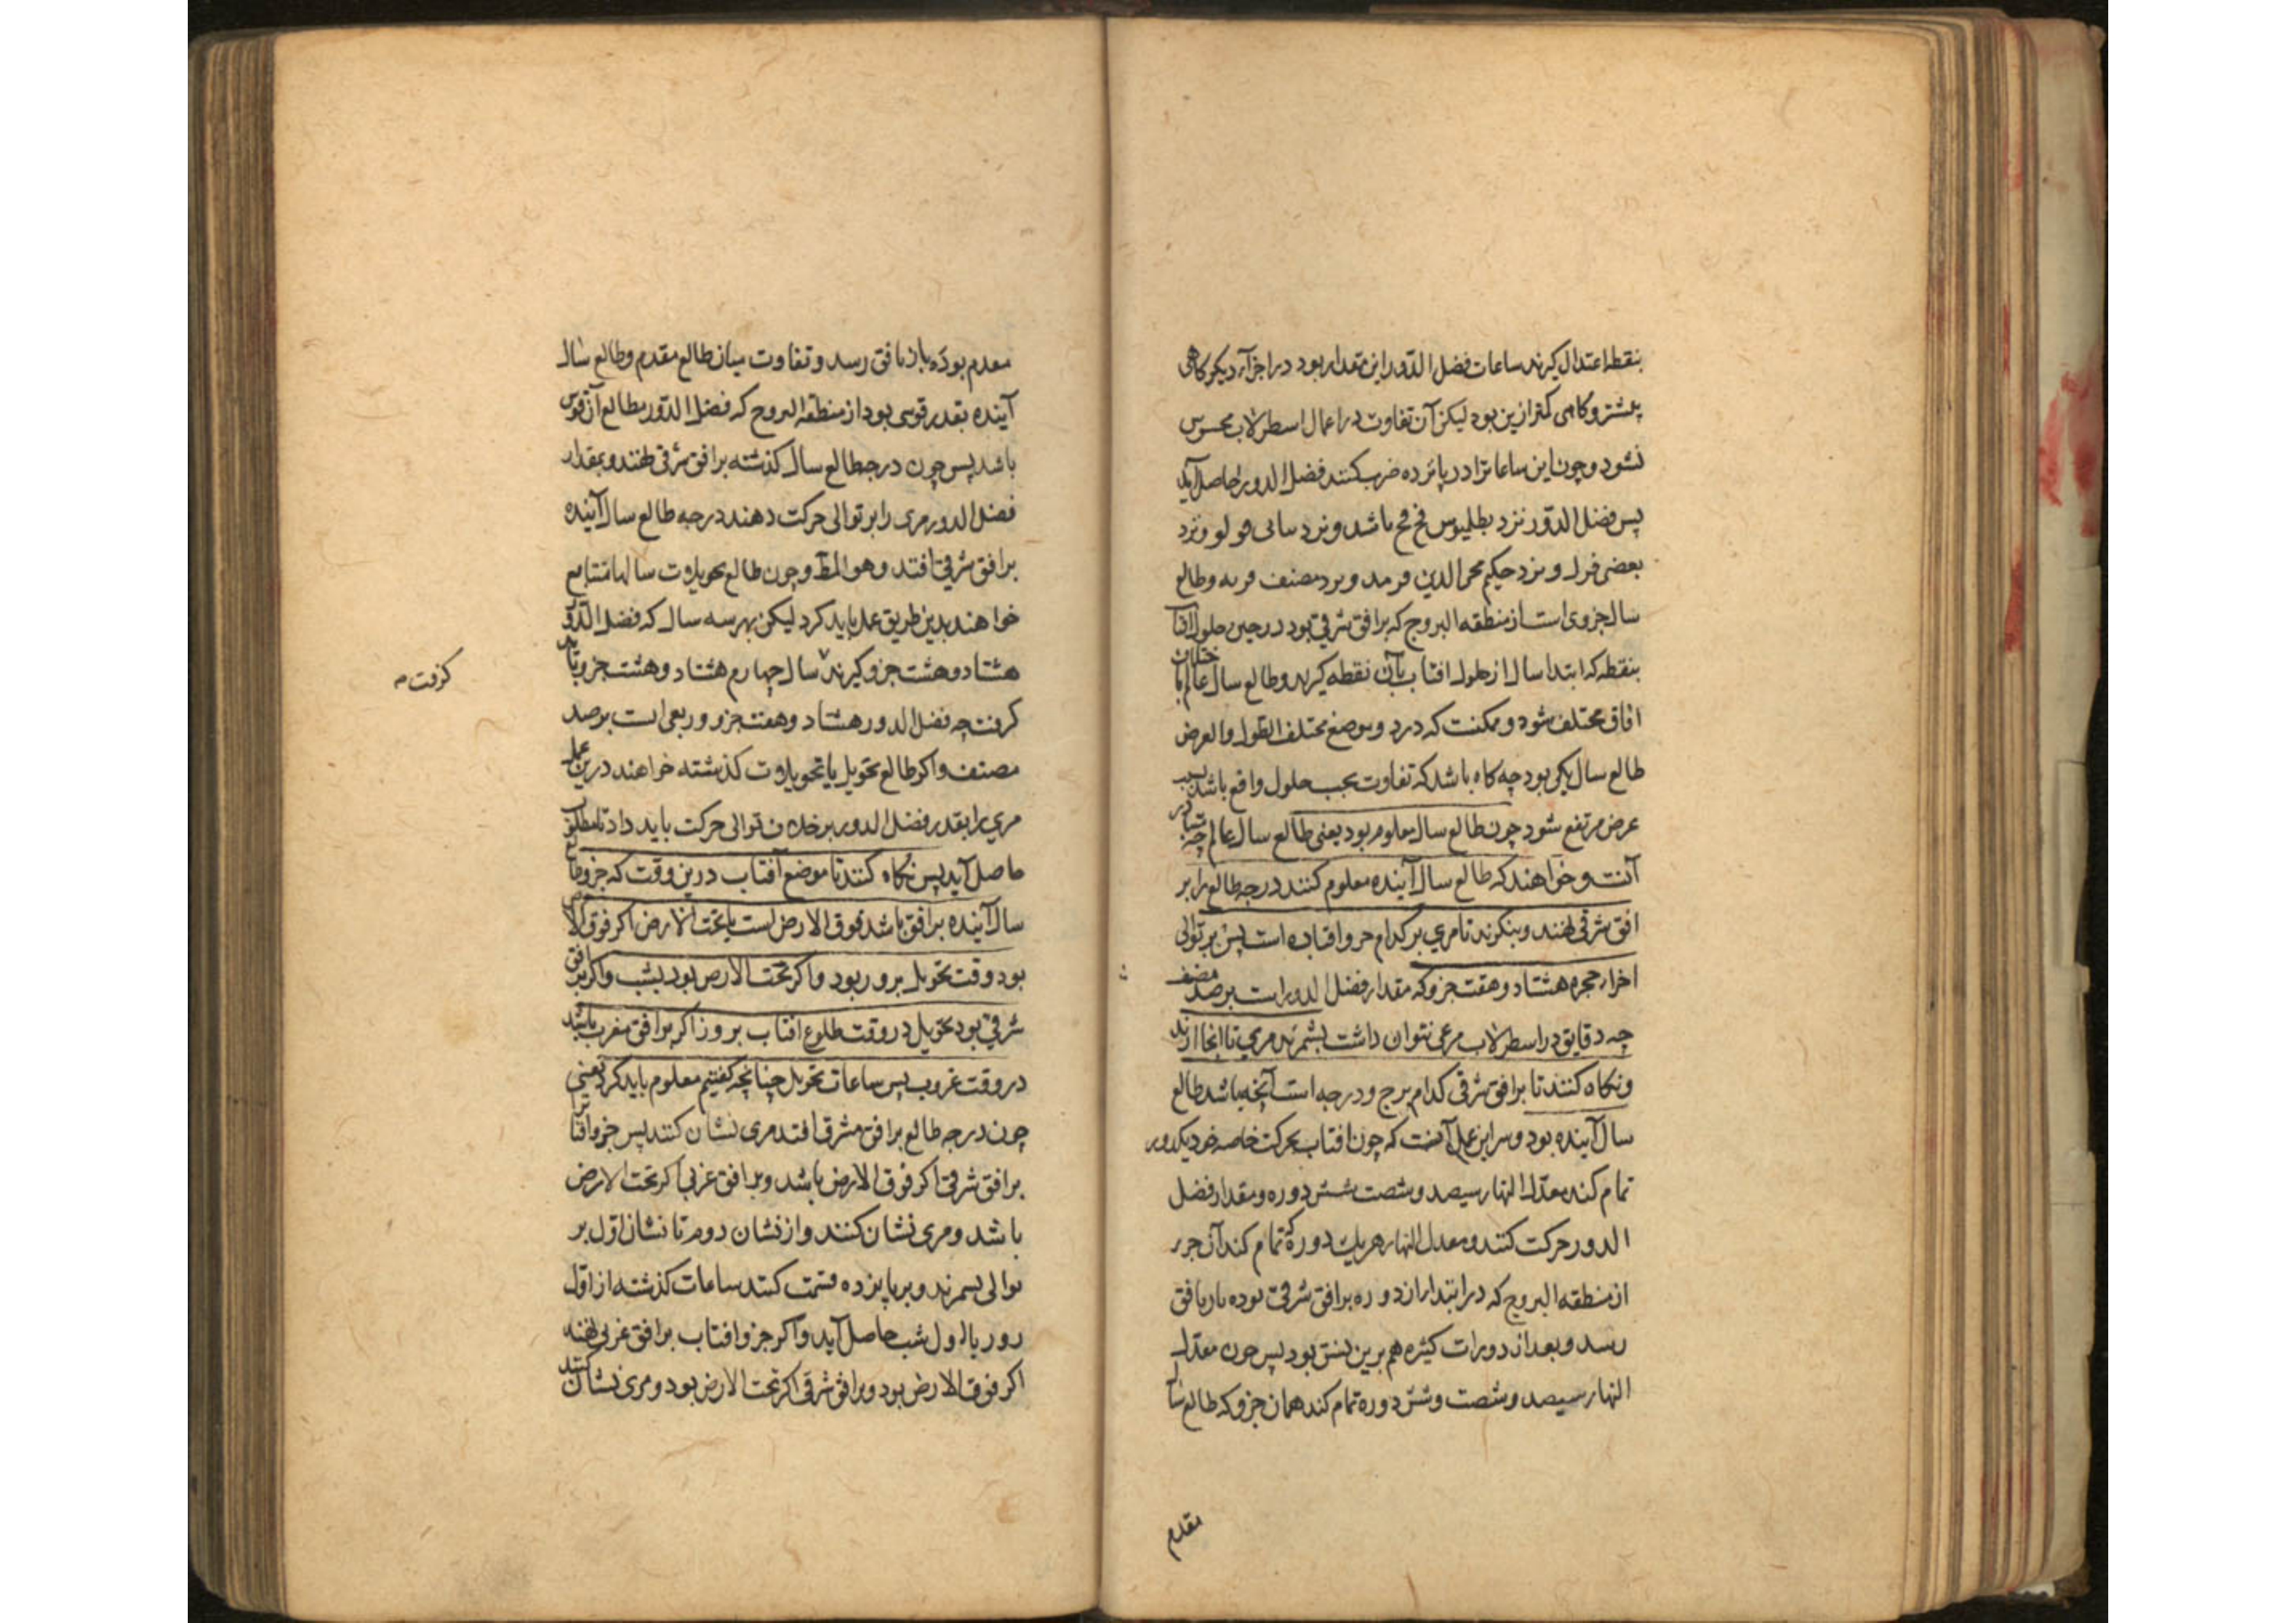 بنقطه اعتدال کیرند ساعات فضل الدّور این مقدار بود در اجزآء دیکر کاهی
بیشتر و کاهی کمتر ازین بود لیکن آن تفاوت در اعمال اسطرلاب محسوس
نشود و چون این ساعاترا در پانزده ضرب کنند فضل الدور حاصل آید
پس فضل الدّور نزد بطلیموس فح باشد و نزد
بعضی و نزد حکیم محی الدین و نزد مصنف و طالع
سال جزوی است از منطقه البروج که بر افق شرقی بود در حین حلول آفتاب
بنقطه که ابتداء سال از حلول افتاب بآن نقطه کیرند و طالع سال عالم باختلاف
افاق مختلف شود و ممکنست که در دو موضع مختلف الطول والعرض
طالع سال یکی بود چه کاه باشد که تفاوت بحسب حلول واقع باشد بسبب
عرض مرتفع شود چون طالع سال معلوم بود یعنی طالع سال عالم چه
آنست و خواهند که طالع سال آینده معلوم کنند درجه طالع را بر
افق شرقی نهند و بنکرند تا مری بر کدام جزو افتاده است پس بر توالی
اجزاء حجره هشتاد و هفت جزو که مقدار فضل الدور است برصد مصنف
چه دقایق در اسطرلاب مرعی نتوان داشت بشمرند مری تا انجا ارند
و نکاه کنند تا بر افق شرقی کدام برج و درجه است آنچه باشد طالع
سال آینده بود و سر این عمل آنست که چون افتاب بحرکت خاصه خود یکدور
تمام کند معدّل النهار سیصد و شصت شش دوره و مقدار فضل
الدور حرکت کنند و معدل النهار هر یک دوره تمام کند آن جزو
از منطقه البروج که در ابتداء ان دوره بر افق شرقی بوده باز بافق
رسد و بعد از دورات کثیره هم برین نسق بود پس چون معدّل
النهار سیصد و شصت و شش دوره تمام کند همان جزو که طالع سال
مقدم
مقدم بوده باز بافق رسد و تفاوت میان طالع مقدم و طالع سال
آینده بقدر قوسی بود از منطقه البروج که فضل الدّور مطالع آن قوس
باشد پس چون درجه طالع سال کذشته بر افق شرقی نهند و بمقدار
فضل الدور مری را بر توالی حرکت دهند درجه طالع سال آینده
بر افق شرقی افتد و هو المط و چون طالع تحویلات سالها متتابع
خواهند بدین طریق عمل باید کرد لیکن بهر سه سال که فضل الدّور
هشتاد و هشت جزو کیرند سال چهارم هشتاد و هشت جزو باید
کرفت
کرفت چه فضل الدور هشتاد و هفت جزو و ربعی است برصد
مصنف و اکر طالع تحویل یا تحویلات کذشته خواهند درین عمل
مری را بقدر فضل الدور بر خلاف توالی حرکت باید داد تا مطلوب
حاصل آید پس نکاه کنند تا موضع آفتاب درین وقت که جزو طالع
سال آینده بر افق باشد فوق الارض است یا تحت الارض اکر فوق الارض
بود وقت تحویل بروز بود و اکر تحت الارض بود بشب و اکر بر افق
شرقی بود تحویل در وقت طلوع افتاب بروز اکر بر افق مغرب باشد
در وقت غروب پس ساعات تحویل چنانچه کفتیم معلوم باید کرد یعنی
چون درجه طالع بر افق مشرقی افتد مری نشان کنند پس جزو افتاب را
بر افق شرقی اکر فوق الارض باشد و بر افق غربی اکر تحت الارض
باشد و مری نشان کنند و از نشان دوم تا نشان اوّل بر
توالی بشمرند و بر پانزده قسمت کنند ساعات کذشته از اوّل
روز یا اول شب حاصل آید و اکر جزو افتاب بر افق غربی نهند
اکر فوق الارض بود و بر افق شرقی اکر تحت الارض بود و مری نشان کنند